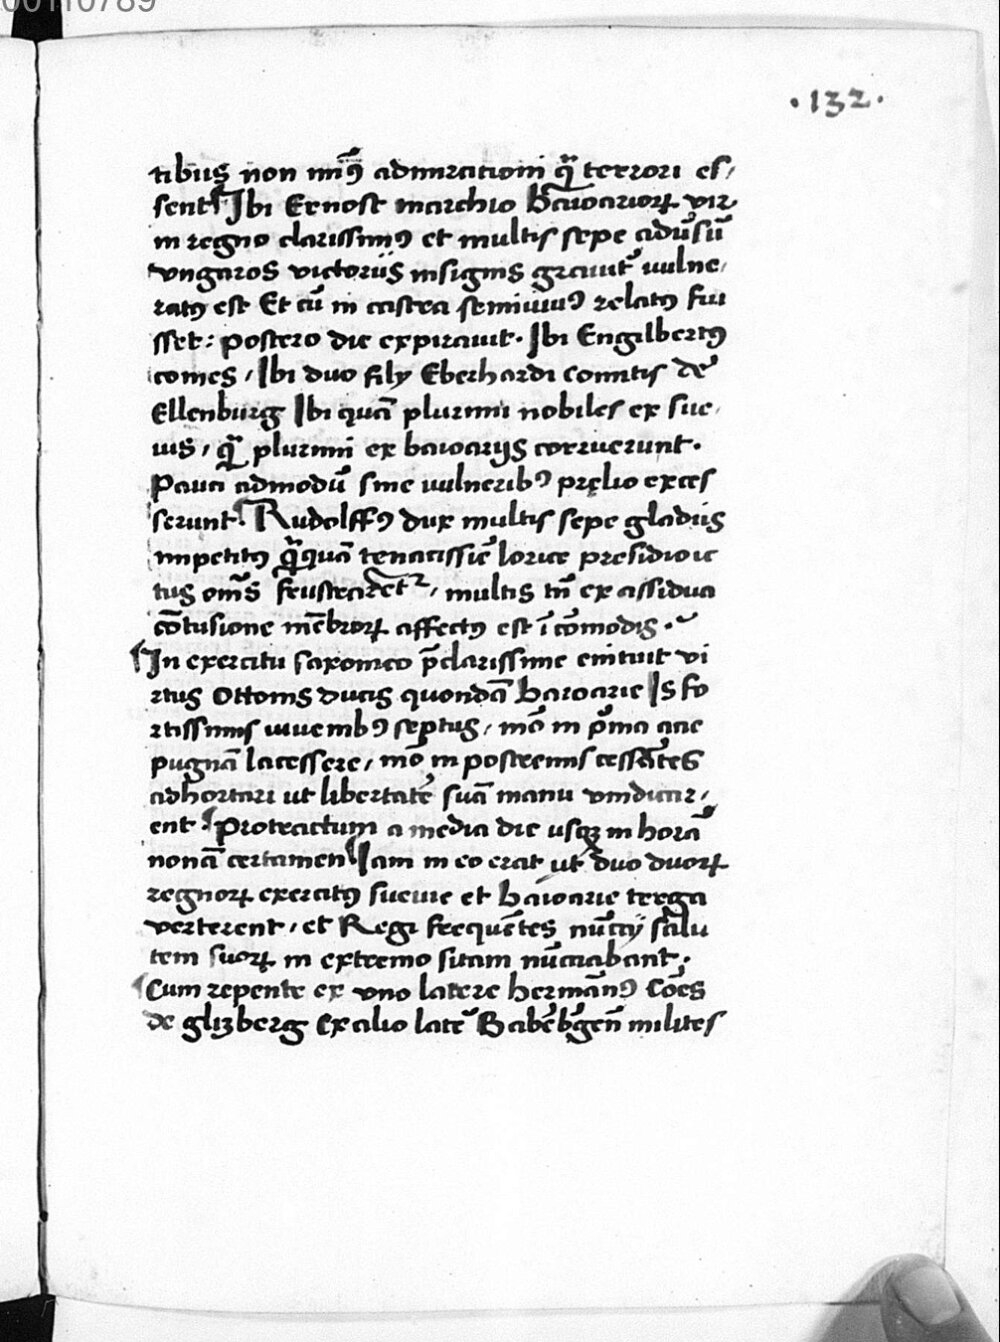 00110789
·132·
tibus non min⁹ admirationi q̃ terrori es,
sent ¶ Ibi Ernost marchio Bawarioꝝ vir
in regno clarissim⁹ et multis sepe adũsũ
vngaros victoriis insignis grauit̃ uulne,
rat⁹ est Et cũ in castra semiuiu⁹ relat⁹ fui
sset: postero die expirauit. Ibi Engilbert⁹
comes, Ibi duo filij Eberhardi comitis de
Ellenburg Ibi quã plurimi nobiles ex sue,
uis, q̃ plurimi ex bawarijs corruerunt.
Pauci admodũ sine uulnerib⁹ pręlio exces
serunt. ¶ Rudolff⁹ dux multis sepe gladiis
impetit⁹ q̃quã tenacissie̅ lorice presidio ic
tus om̃s frustraret᷑, multis tñ ex assidua
cõtusione mẽbroꝝ affect⁹ est ĩcõmodis.
¶ In exercitu saxonico p̃clarissime enituit vi
rtus Ottonis ducis quondã Bawarie Is fo
rtissimis iuuenib⁹ septus, mõ in p̃ma acie
pugnã lacessere, mõ in postremis cessãtes
adhortari ut libertatẽ suã manu vindicar,
ent ¶ Protractum a media die usqꝫ in horã
nonã certamen ¶ Iam in eo erat ut duo duoꝝ
regnoꝝ exercit⁹ sueuie et bawarie terga
verterent, et Regi frequẽtes nũcij salu
tem suoꝝ in extremo sitam nũciabant.
¶ Cum repente ex vno latere hermãn⁹ Cões
de glizberg Ex alio latẽ Babẽb̃gen̅ milites